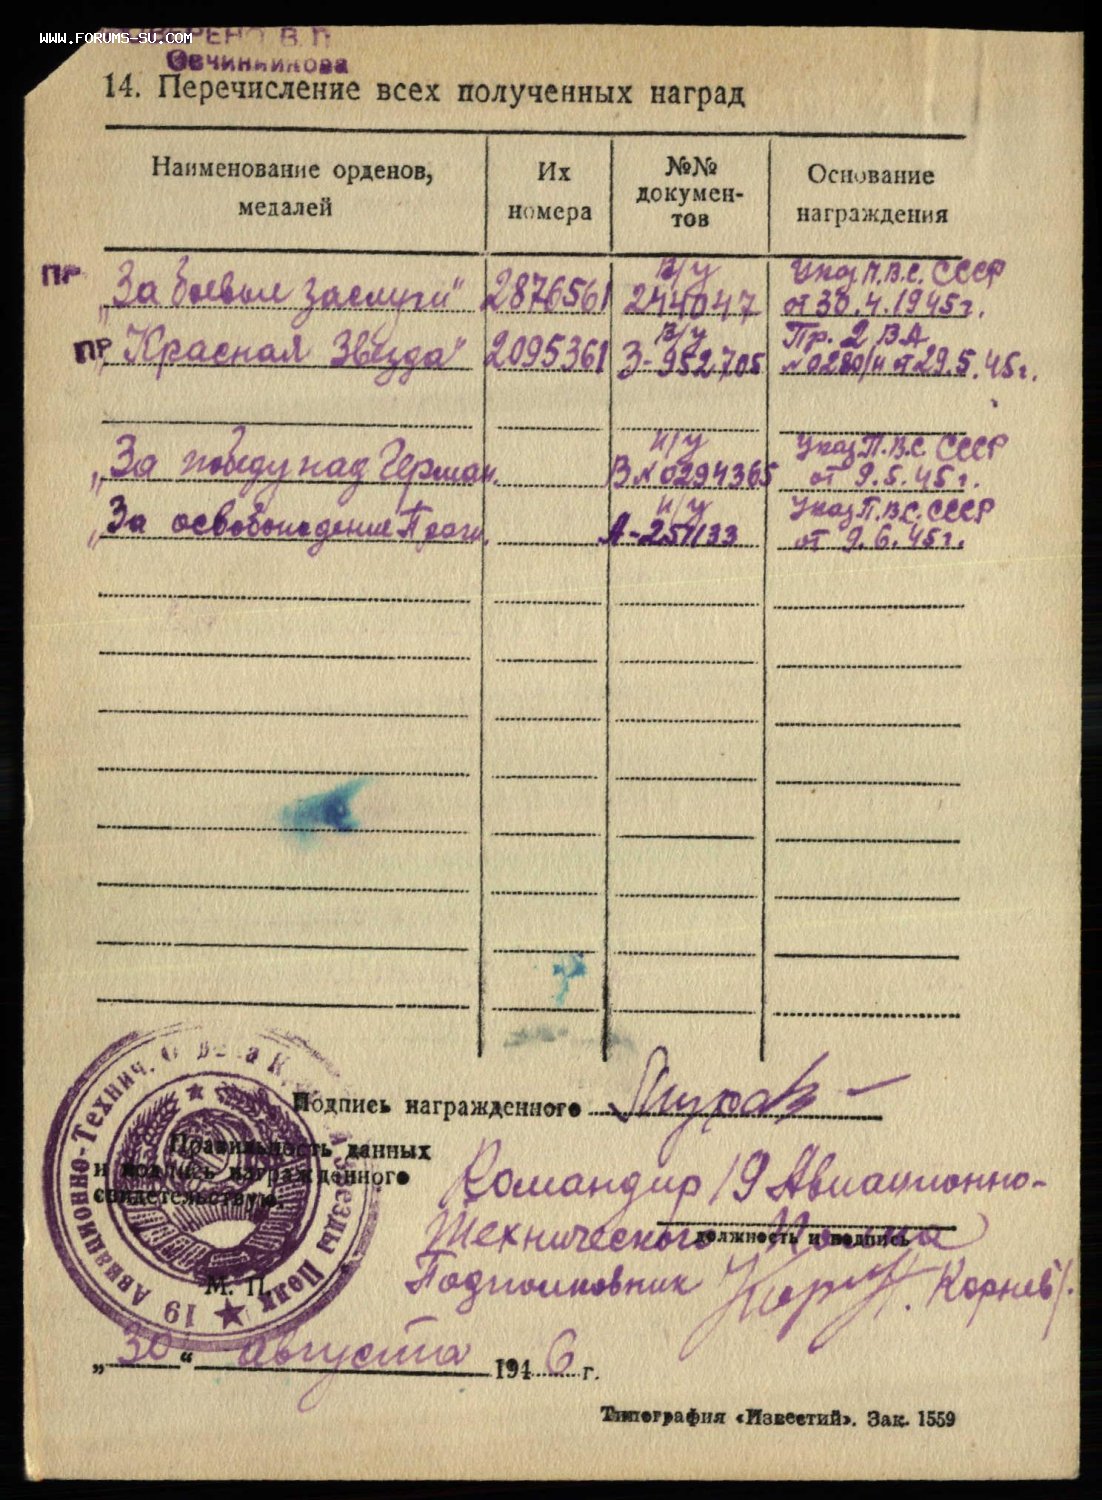 WWW.FORUMS-SU.COM
В. П.
Овчинникова
14. Перечисление всех полученных наград
Наименование орденов, медалей
Их номера
№№ документов
Основание награждения
ПР „За боевые заслуги“ 2876561 В/у 244047 Указ П.В.С. СССР от 30.4.1945г.
ПР „Красная Звезда“ 2095361 В/у З-952705 Пр. 2 ВА №0280/н от 29.5.45г.
„За победу над Герман. н/у В№0294365 Указ П.В.С. СССР от 9.5.45г.
„За освобождение Праги. н/у А-251133 Указ П.В.С. СССР от 9.6.45г.
Подпись награжденного
Правильность данных
и подпись награжденного
свидетельствую.
Командир 19 Авиационно-
Технического Полка
должность и подпись
Подполковник /Корнев/.
М. П.
19 Авиационно-Технич. Полк
„30“ августа 1946 г.
Типография «Известий». Зак. 1559